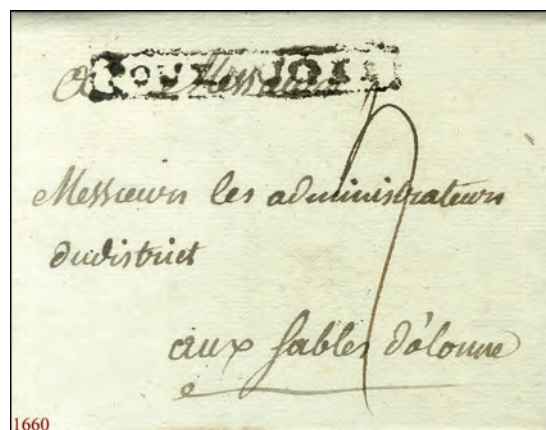 A Messieurs
Messieurs les administrateurs
du district
aux Sables d'olonne
1660